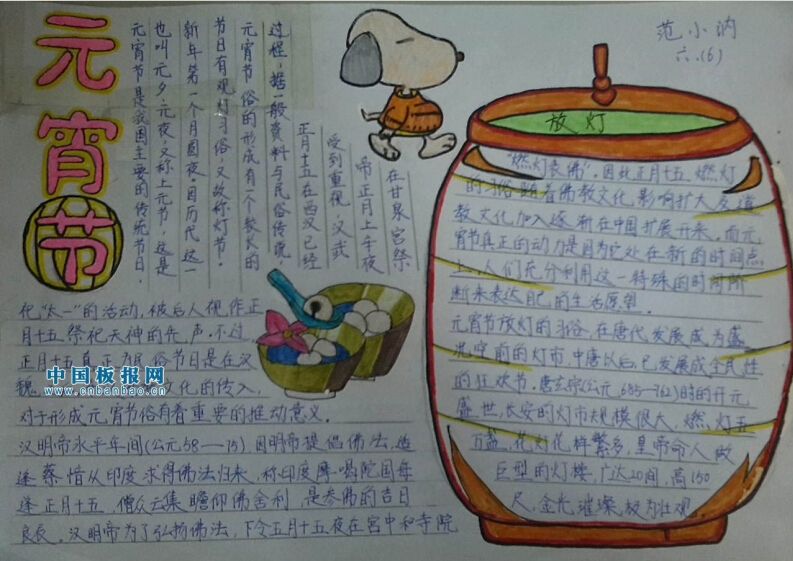 元宵节
范小汭
六.(6)
元宵节是我国主要的传统节日,
也叫元夕、元夜,又称上元节,这是
新年第一个月圆夜。因历代这一
节日有观灯习俗,又故称灯节。
元宵节俗的形成有一个较长的
过程,据一般资料与民俗传说,
正月十五在西汉已经
受到重视,汉武
帝正月上午夜
在甘泉宫祭
祀“太一”的活动,被后人视作正
月十五祭祀天神的先声。不过
正月十五真正为民俗节日是在汉
魏 文化的传入,
对于形成元宵节俗有着重要的推动意义。
汉明帝永平年间(公元58——75),因明帝提倡佛法,适
逢蔡愔从印度求得佛法归来,称印度摩喝陀国每
逢正月十五,僧众云集瞻仰佛舍利,是参佛的吉日
良辰。汉明帝为了弘扬佛法,下令正月十五夜在宫中和寺院
中国板报网
www.cnbanbao.cn
放灯
“燃灯表佛”。因此正月十五燃灯
的习俗随着佛教文化影响扩大及道
教文化加入逐渐在中国扩展开来。而元
宵节真正的动力是因为它处在新的时间点
上,人们充分利用这一特殊的时间阶
断来表达自己的生活愿望。
元宵节放灯的习俗,在唐代发展成为盛
况空前的灯市,中唐以后,已发展成全民性
的狂欢节。唐玄宗(公元685——762)时的开元
盛世,长安的灯市规模很大,燃灯五
万盏,花灯花样繁多,皇帝命人做
巨型的灯楼,广达20间,高150
尺,金光璀璨,极为壮观。